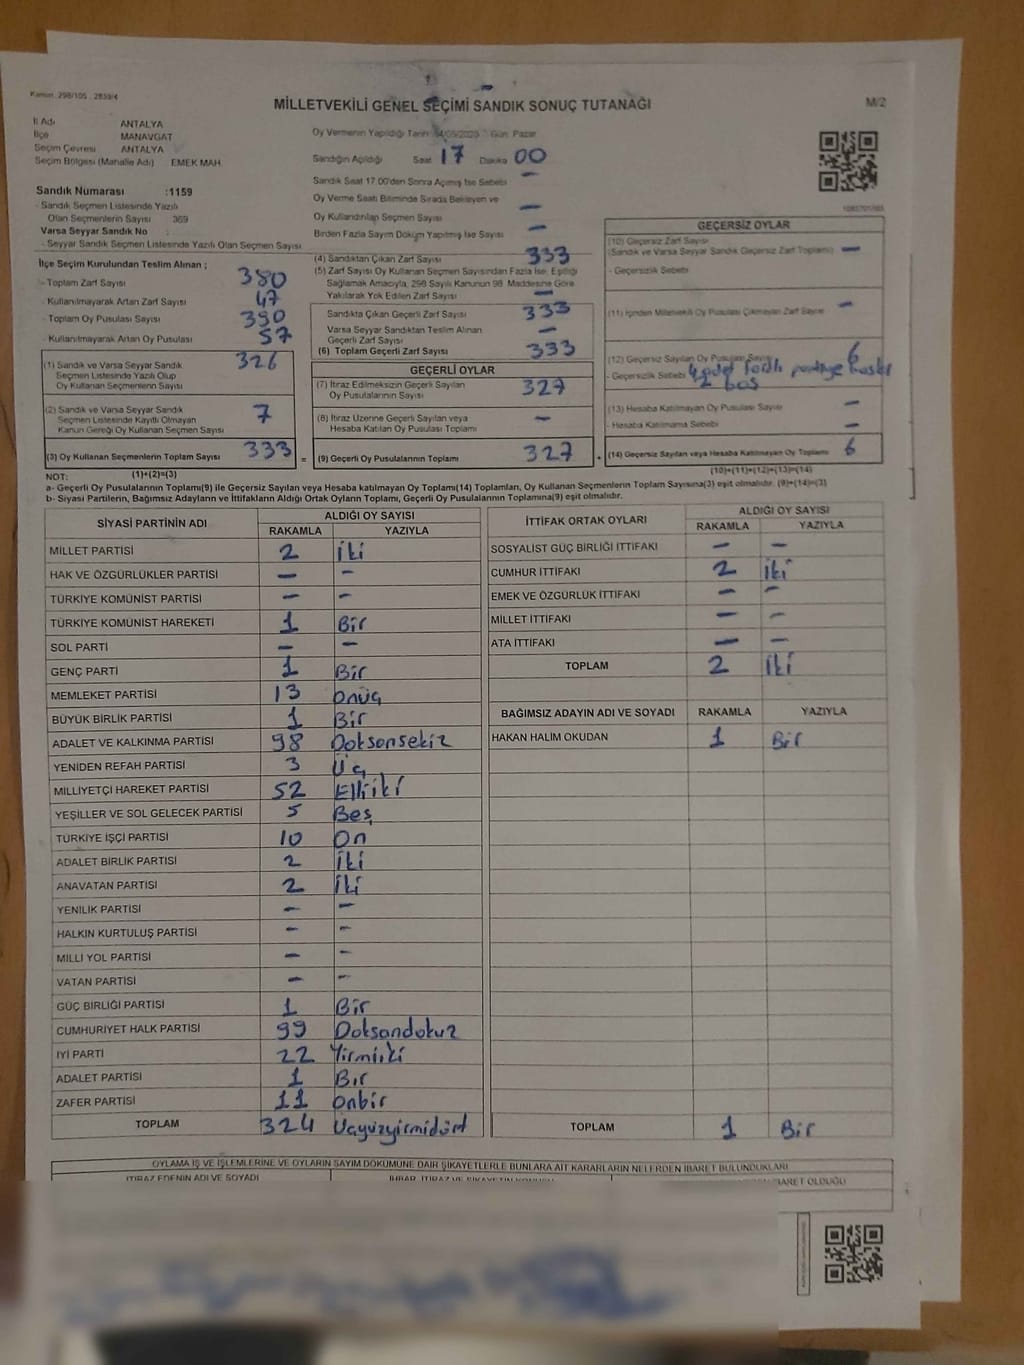 Kanun: 298/105 . 2839/4
MİLLETVEKİLİ GENEL SEÇİMİ SANDIK SONUÇ TUTANAĞI
M/2
İl Adı ANTALYA
İlçe MANAVGAT
Seçim Çevresi ANTALYA
Seçim Bölgesi (Mahalle Adı) EMEK MAH.
Oy Vermenin Yapıldığı Tarih: Gün: Pazar
Sandığın Açıldığı Saat 17 Dakika 00
Sandık Saat 17:00'den Sonra Açılmış İse Sebebi -
Oy Verme Saati Bitiminde Sırada Bekleyen ve
Oy Kullandırılan Seçmen Sayısı -
Birden Fazla Sayım Döküm Yapılmış İse Sayısı -
Sandık Numarası :1159
- Sandık Seçmen Listesinde Yazılı
Olan Seçmenlerin Sayısı 369
Varsa Seyyar Sandık No :
- Seyyar Sandık Seçmen Listesinde Yazılı Olan Seçmen Sayısı
İlçe Seçim Kurulundan Teslim Alınan ;
- Toplam Zarf Sayısı 380
- Kullanılmayarak Artan Zarf Sayısı 47
- Toplam Oy Pusulası Sayısı 390
- Kullanılmayarak Artan Oy Pusulası 57
(1) Sandık ve Varsa Seyyar Sandık 326
Seçmen Listesinde Yazılı Olup
Oy Kullanan Seçmenlerin Sayısı
(2) Sandık ve Varsa Seyyar Sandık 7
Seçmen Listesinde Kayıtlı Olmayan
Kanun Gereği Oy Kullanan Seçmen Sayısı
(3) Oy Kullanan Seçmenlerin Toplam Sayısı 333 =
(4) Sandıktan Çıkan Zarf Sayısı 333
(5) Zarf Sayısı Oy Kullanan Seçmen Sayısından Fazla İse, Eşitliği
Sağlamak Amacıyla, 298 Sayılı Kanunun 98. Maddesine Göre
Yakılarak Yok Edilen Zarf Sayısı -
Sandıkta Çıkan Geçerli Zarf Sayısı 333
Varsa Seyyar Sandıktan Teslim Alınan
Geçerli Zarf Sayısı -
(6) Toplam Geçerli Zarf Sayısı 333
GEÇERLİ OYLAR
(7) İtiraz Edilmeksizin Geçerli Sayılan
Oy Pusulalarının Sayısı 327
(8) İtiraz Üzerine Geçerli Sayılan veya
Hesaba Katılan Oy Pusulası Toplamı -
(9) Geçerli Oy Pusulalarının Toplamı 327
GEÇERSİZ OYLAR
(10) Geçersiz Zarf Sayısı
(Sandık ve Varsa Seyyar Sandık Geçersiz Zarf Toplamı) -
- Geçersizlik Sebebi
(11) İçinden Milletvekili Oy Pusulası Çıkmayan Zarf Sayısı -
(12) Geçersiz Sayılan Oy Pusulası Sayısı 6
- Geçersizlik Sebebi 4 adet farklı partiye
2 boş
(13) Hesaba Katılmayan Oy Pusulası Sayısı -
- Hesaba Katılmama Sebebi -
(14) Geçersiz Sayılan veya Hesaba Katılmayan Oy Toplamı 6
NOT: (1)+(2)=(3)
(10)+(11)+(12)+(13)=(14)
a- Geçerli Oy Pusulalarının Toplamı(9) ile Geçersiz Sayılan veya Hesaba katılmayan Oy Toplamı(14) Toplamları, Oy Kullanan Seçmenlerin Toplam Sayısına(3) eşit olmalıdır. (9)+(14)=(3)
b- Siyasi Partilerin, Bağımsız Adayların ve İttifakların Aldığı Ortak Oyların Toplamı, Geçerli Oy Pusulalarının Toplamına(9) eşit olmalıdır.
SİYASİ PARTİNİN ADI ALDIĞI OY SAYISI
RAKAMLA YAZIYLA
MİLLET PARTİSİ 2 İki
HAK VE ÖZGÜRLÜKLER PARTİSİ - -
TÜRKİYE KOMÜNİST PARTİSİ - -
TÜRKİYE KOMÜNİST HAREKETİ 1 Bir
SOL PARTİ - -
GENÇ PARTİ 1 Bir
MEMLEKET PARTİSİ 13 Onüç
BÜYÜK BİRLİK PARTİSİ 1 Bir
ADALET VE KALKINMA PARTİSİ 98 Doksansekiz
YENİDEN REFAH PARTİSİ 3 Üç
MİLLİYETÇİ HAREKET PARTİSİ 52 Elliiki
YEŞİLLER VE SOL GELECEK PARTİSİ 5 Beş
TÜRKİYE İŞÇİ PARTİSİ 10 On
ADALET BİRLİK PARTİSİ 2 İki
ANAVATAN PARTİSİ 2 İki
YENİLİK PARTİSİ - -
HALKIN KURTULUŞ PARTİSİ - -
MİLLİ YOL PARTİSİ - -
VATAN PARTİSİ - -
GÜÇ BİRLİĞİ PARTİSİ 1 Bir
CUMHURİYET HALK PARTİSİ 99 Doksandokuz
İYİ PARTİ 22 Yirmiiki
ADALET PARTİSİ 1 Bir
ZAFER PARTİSİ 11 Onbir
TOPLAM 324 Üçyüzyirmidört
İTTİFAK ORTAK OYLARI ALDIĞI OY SAYISI
RAKAMLA YAZIYLA
SOSYALİST GÜÇ BİRLİĞİ İTTİFAKI - -
CUMHUR İTTİFAKI 2 İki
EMEK VE ÖZGÜRLÜK İTTİFAKI - -
MİLLET İTTİFAKI - -
ATA İTTİFAKI - -
TOPLAM 2 İki
BAĞIMSIZ ADAYIN ADI VE SOYADI RAKAMLA YAZIYLA
HAKAN HALİM OKUDAN 1 Bir
TOPLAM 1 Bir
OYLAMA İŞ VE İŞLEMLERİNE VE OYLARIN SAYIM DÖKÜMÜNE DAİR ŞİKAYETLERLE BUNLARA AİT KARARLARIN NELERDEN İBARET BULUNDUKLARI
İTİRAZ EDENİN ADI VE SOYADI